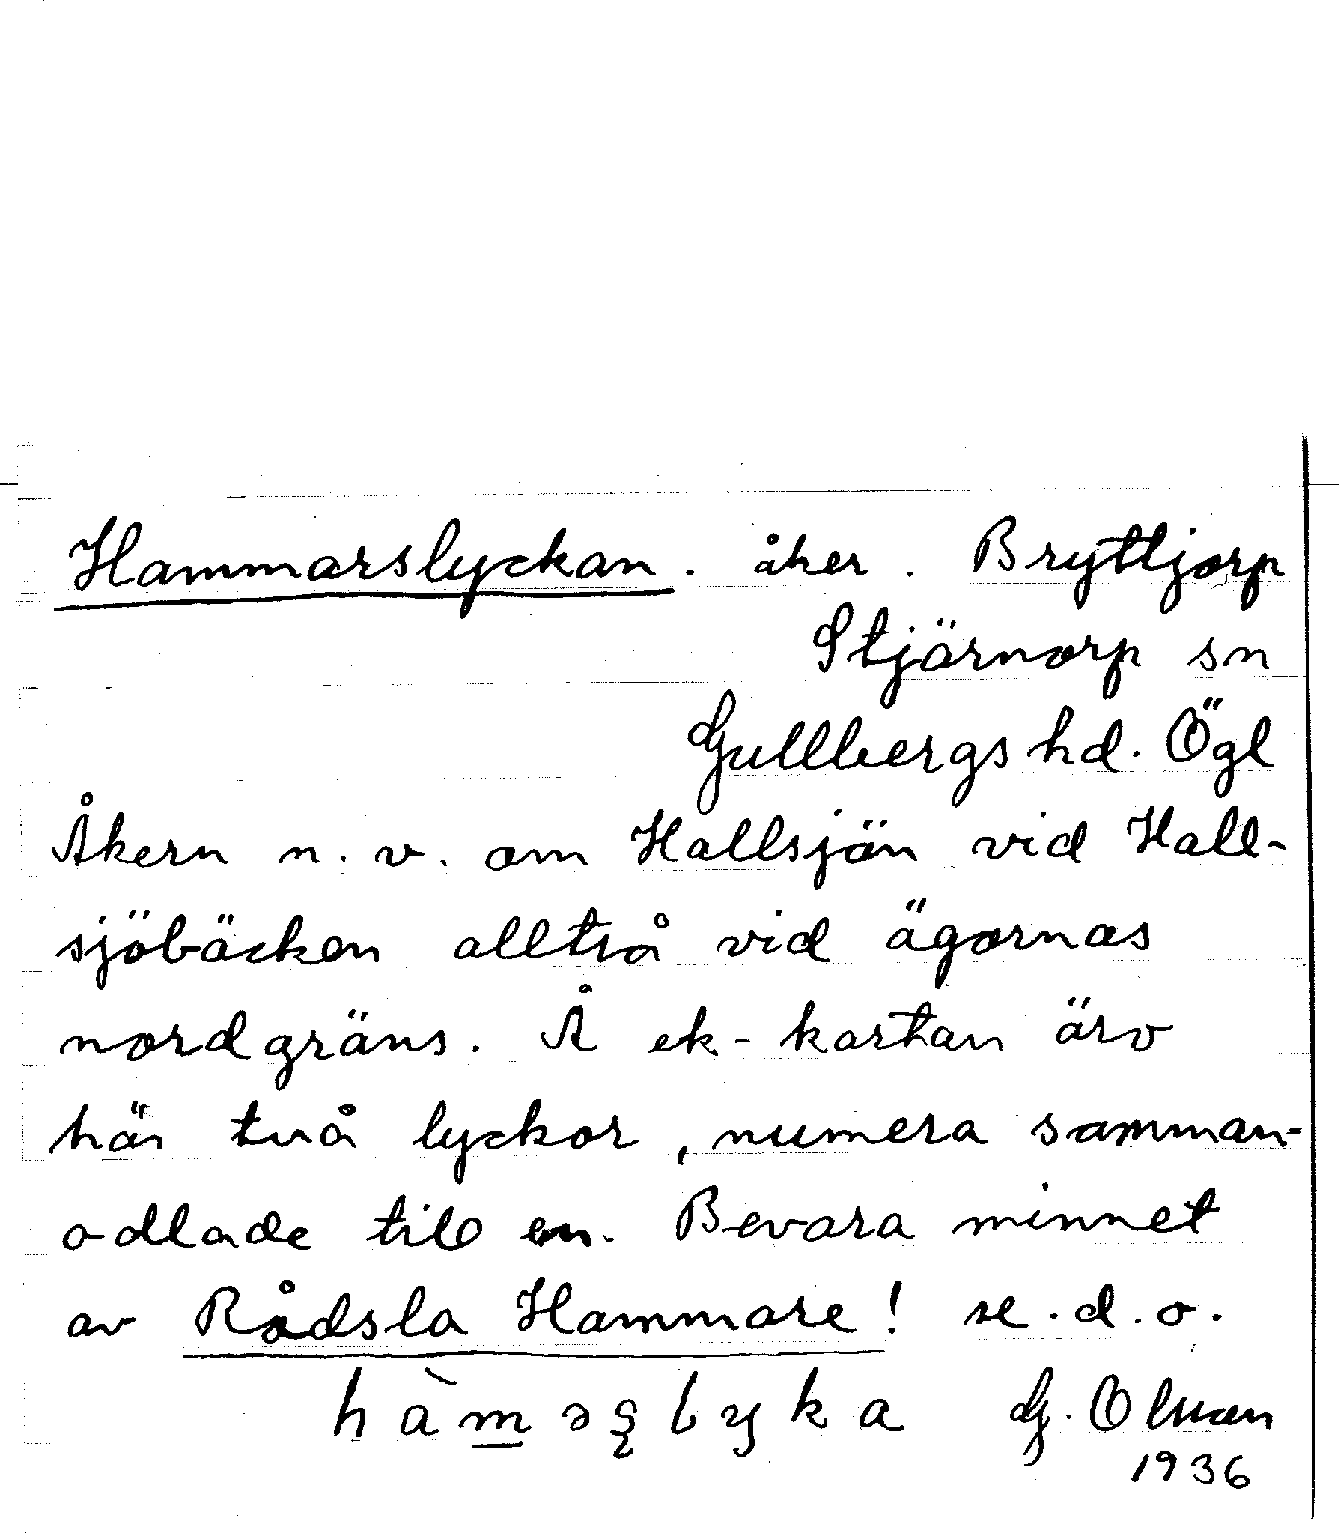 Hammarslyckan. åker. Bryttjorp
Stjärnorp sn
Gullbergs hd. Ögl
Åkern n.v. om Hallsjön vid Hall-
sjöbäcken alltså vid ägornas
nordgräns. Å ek-kartan äro
här två lyckor, numera samman-
odlade till en. Bevara minnet
av Rådsla Hammare! se.d.o.
G. Olman
1936